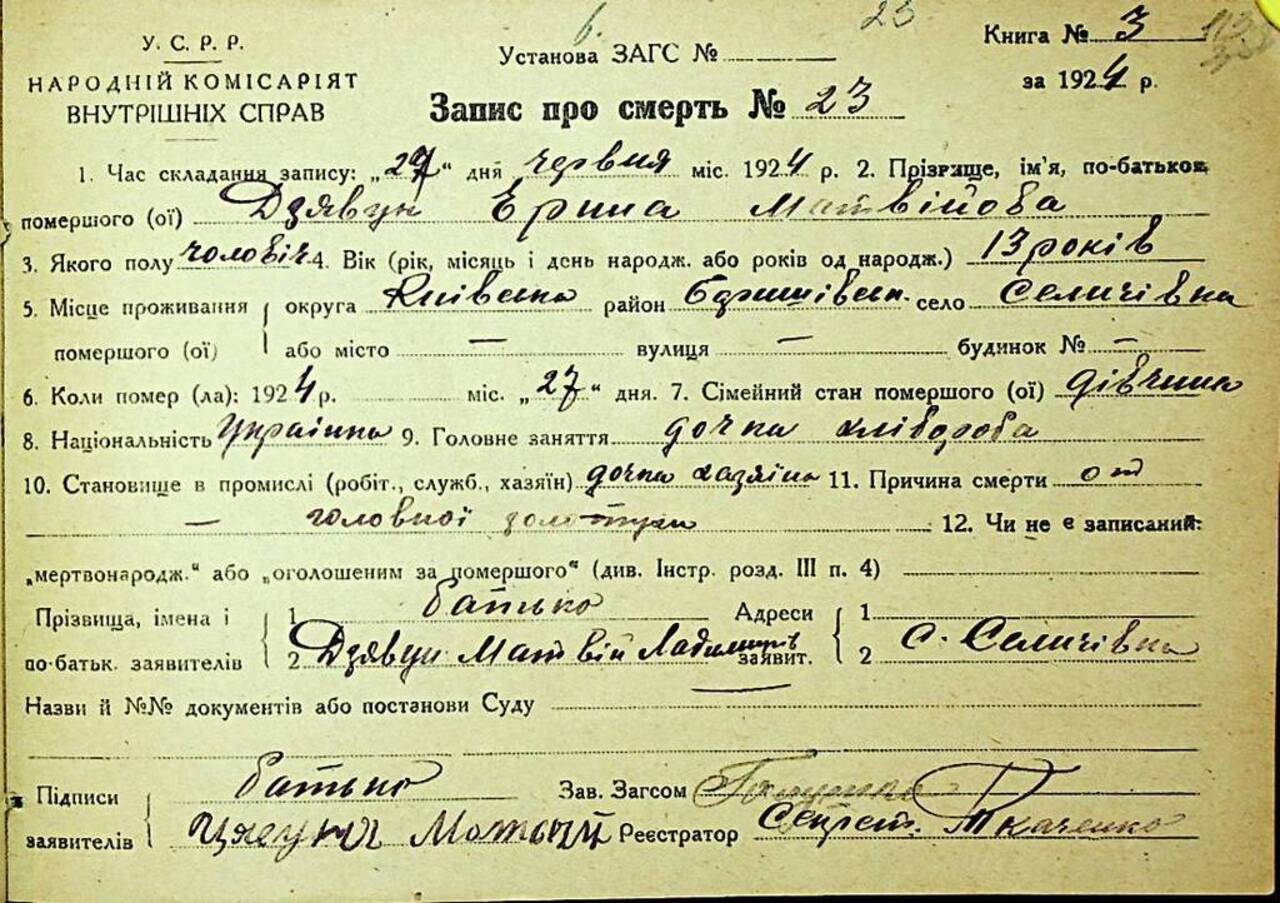 23
У. С. Р. Р.
НАРОДНІЙ КОМІСАРІЯТ
ВНУТРІШНІХ СПРАВ
Установа ЗАГС №
Книга № 3
за 1924 р.
Запис про смерть № 23
1. Час складання запису: „27“ дня червня міс. 1924 р. 2. Прізвище, ім'я, по-батькові
помершого (ої) Дзявун Ерина Матвійова
3. Якого полу чоловіч 4. Вік (рік, місяць і день народж. або років од народж.) 13 років
5. Місце проживання округа Київська район село Селичівка
помершого (ої) або місто — вулиця — будинок № —
6. Коли помер (ла): 1924 р. міс. „27“ дня. 7. Сімейний стан помершого (ої) дівчина
8. Національність Українка 9. Головне заняття дочка хлібороба
10. Становище в промислі (робіт., служб., хазяїн) дочка хазяїна 11. Причина смерти от
— головної золотухи 12. Чи не є записаний:
„мертвонародж.“ або „оголошеним за помершого“ (див. Інстр. розд. III п. 4)
Прізвища, імена і 1 батько Адреси 1
по-батьк. заявителів 2 Дзявун Матвій заявит. 2 с. Селичівка
Назви й №№ документів або постанови Суду —
Підписи батько Зав. Загсом
заявителів Матвій Реєстратор Секрет. Ткаченко